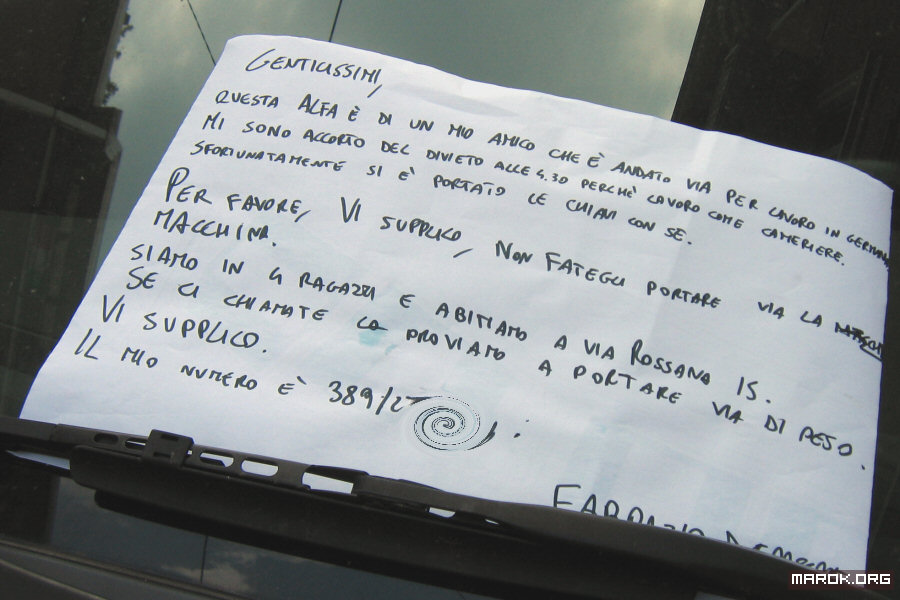 GENTILISSIMI,
QUESTA ALFA È DI UN MIO AMICO CHE È ANDATO VIA PER LAVORO IN GERMANIA.
MI SONO ACCORTO DEL DIVIETO ALLE 4.30 PERCHÈ LAVORO COME CAMERIERE.
SFORTUNATAMENTE SI È PORTATO LE CHIAVI CON SE.
PER FAVORE, VI SUPPLICO, NON FATEGLI PORTARE VIA LA
MACCHINA.
SIAMO IN 4 RAGAZZI E ABITIAMO A VIA ROSSANO 15.
SE CI CHIAMATE LO PROVIAMO A PORTARE VIA DI PESO.
VI SUPPLICO.
IL MIO NUMERO È 389/2
FABRIZIO
MAROK.ORG